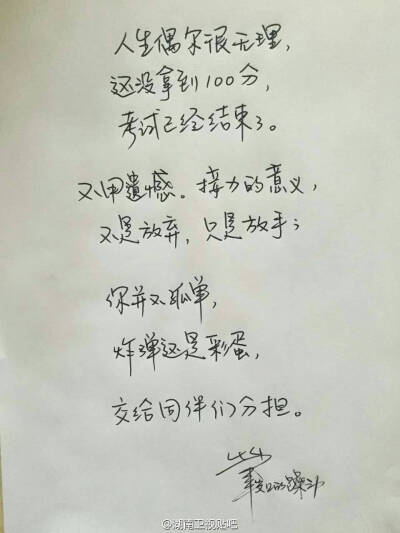 人生偶尔很无理，
还没拿到100分，
考试已经结束了。
不用遗憾。接力的意义，
不是放弃，只是放手；
你并不孤单，
炸弹还是彩蛋，
交给同伴们分担。
@湖南卫视贴吧